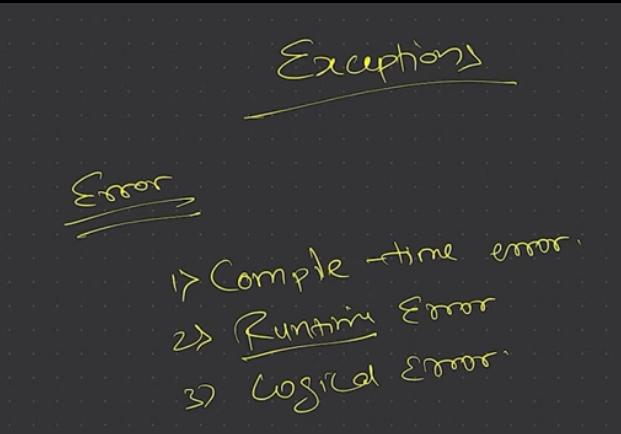 Exceptions
Error
1> Compile-time error.
2> Runtime Error
3> Logical Error.